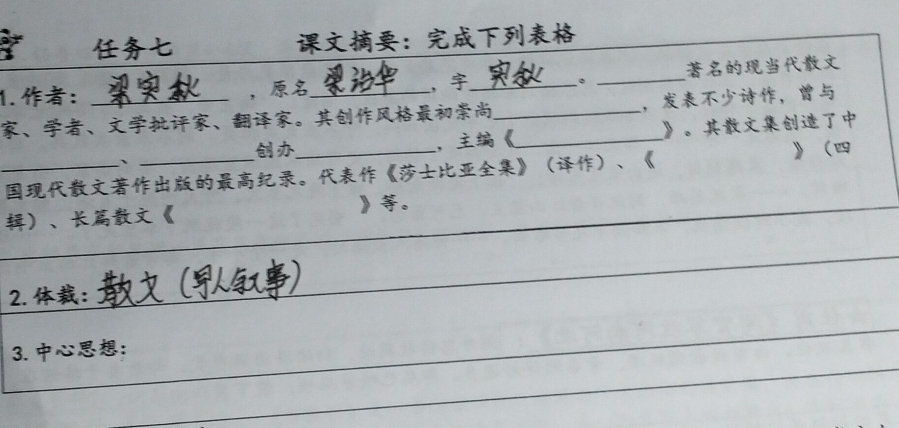 任务七 课文摘要：完成下列表格
1. 作者：梁实秋，原名梁治华，字实秋。________著名的现当代散文
家、学者、文学批评家、翻译家。其创作风格最初崇尚____________，发表不少诗作，曾与
__________、__________创办____________，主编《____________》。其散文集创造了中
国现代散文著作出版的最高纪录。代表作《莎士比亚全集》（译作）、《 》（四
辑）、长篇散文《 》等。
2. 体裁：散文（写人叙事）
3. 中心思想：